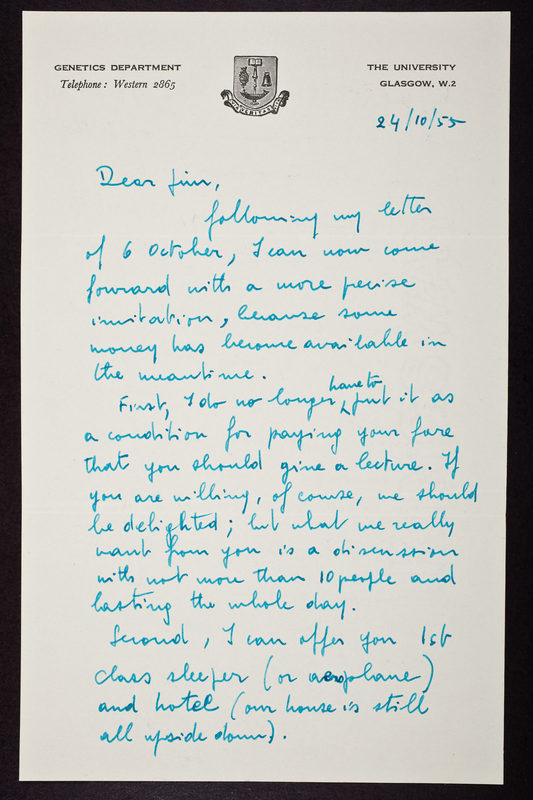 GENETICS DEPARTMENT
Telephone: Western 2865
THE UNIVERSITY
GLASGOW, W.2
24/10/55
Dear Jim,
following my letter
of 6 October, I can now come
forward with a more precise
invitation, because some
money has become available in
the meantime.
First, I do no longer have to put it as
a condition for paying your fare
that you should give a lecture. If
you are willing, of course, we should
be delighted; but what we really
want from you is a discussion
with not more than 10 people and
lasting the whole day.
Second, I can offer you 1st
class sleeper (or aeroplane)
and hotel (our house is still
all upside down).